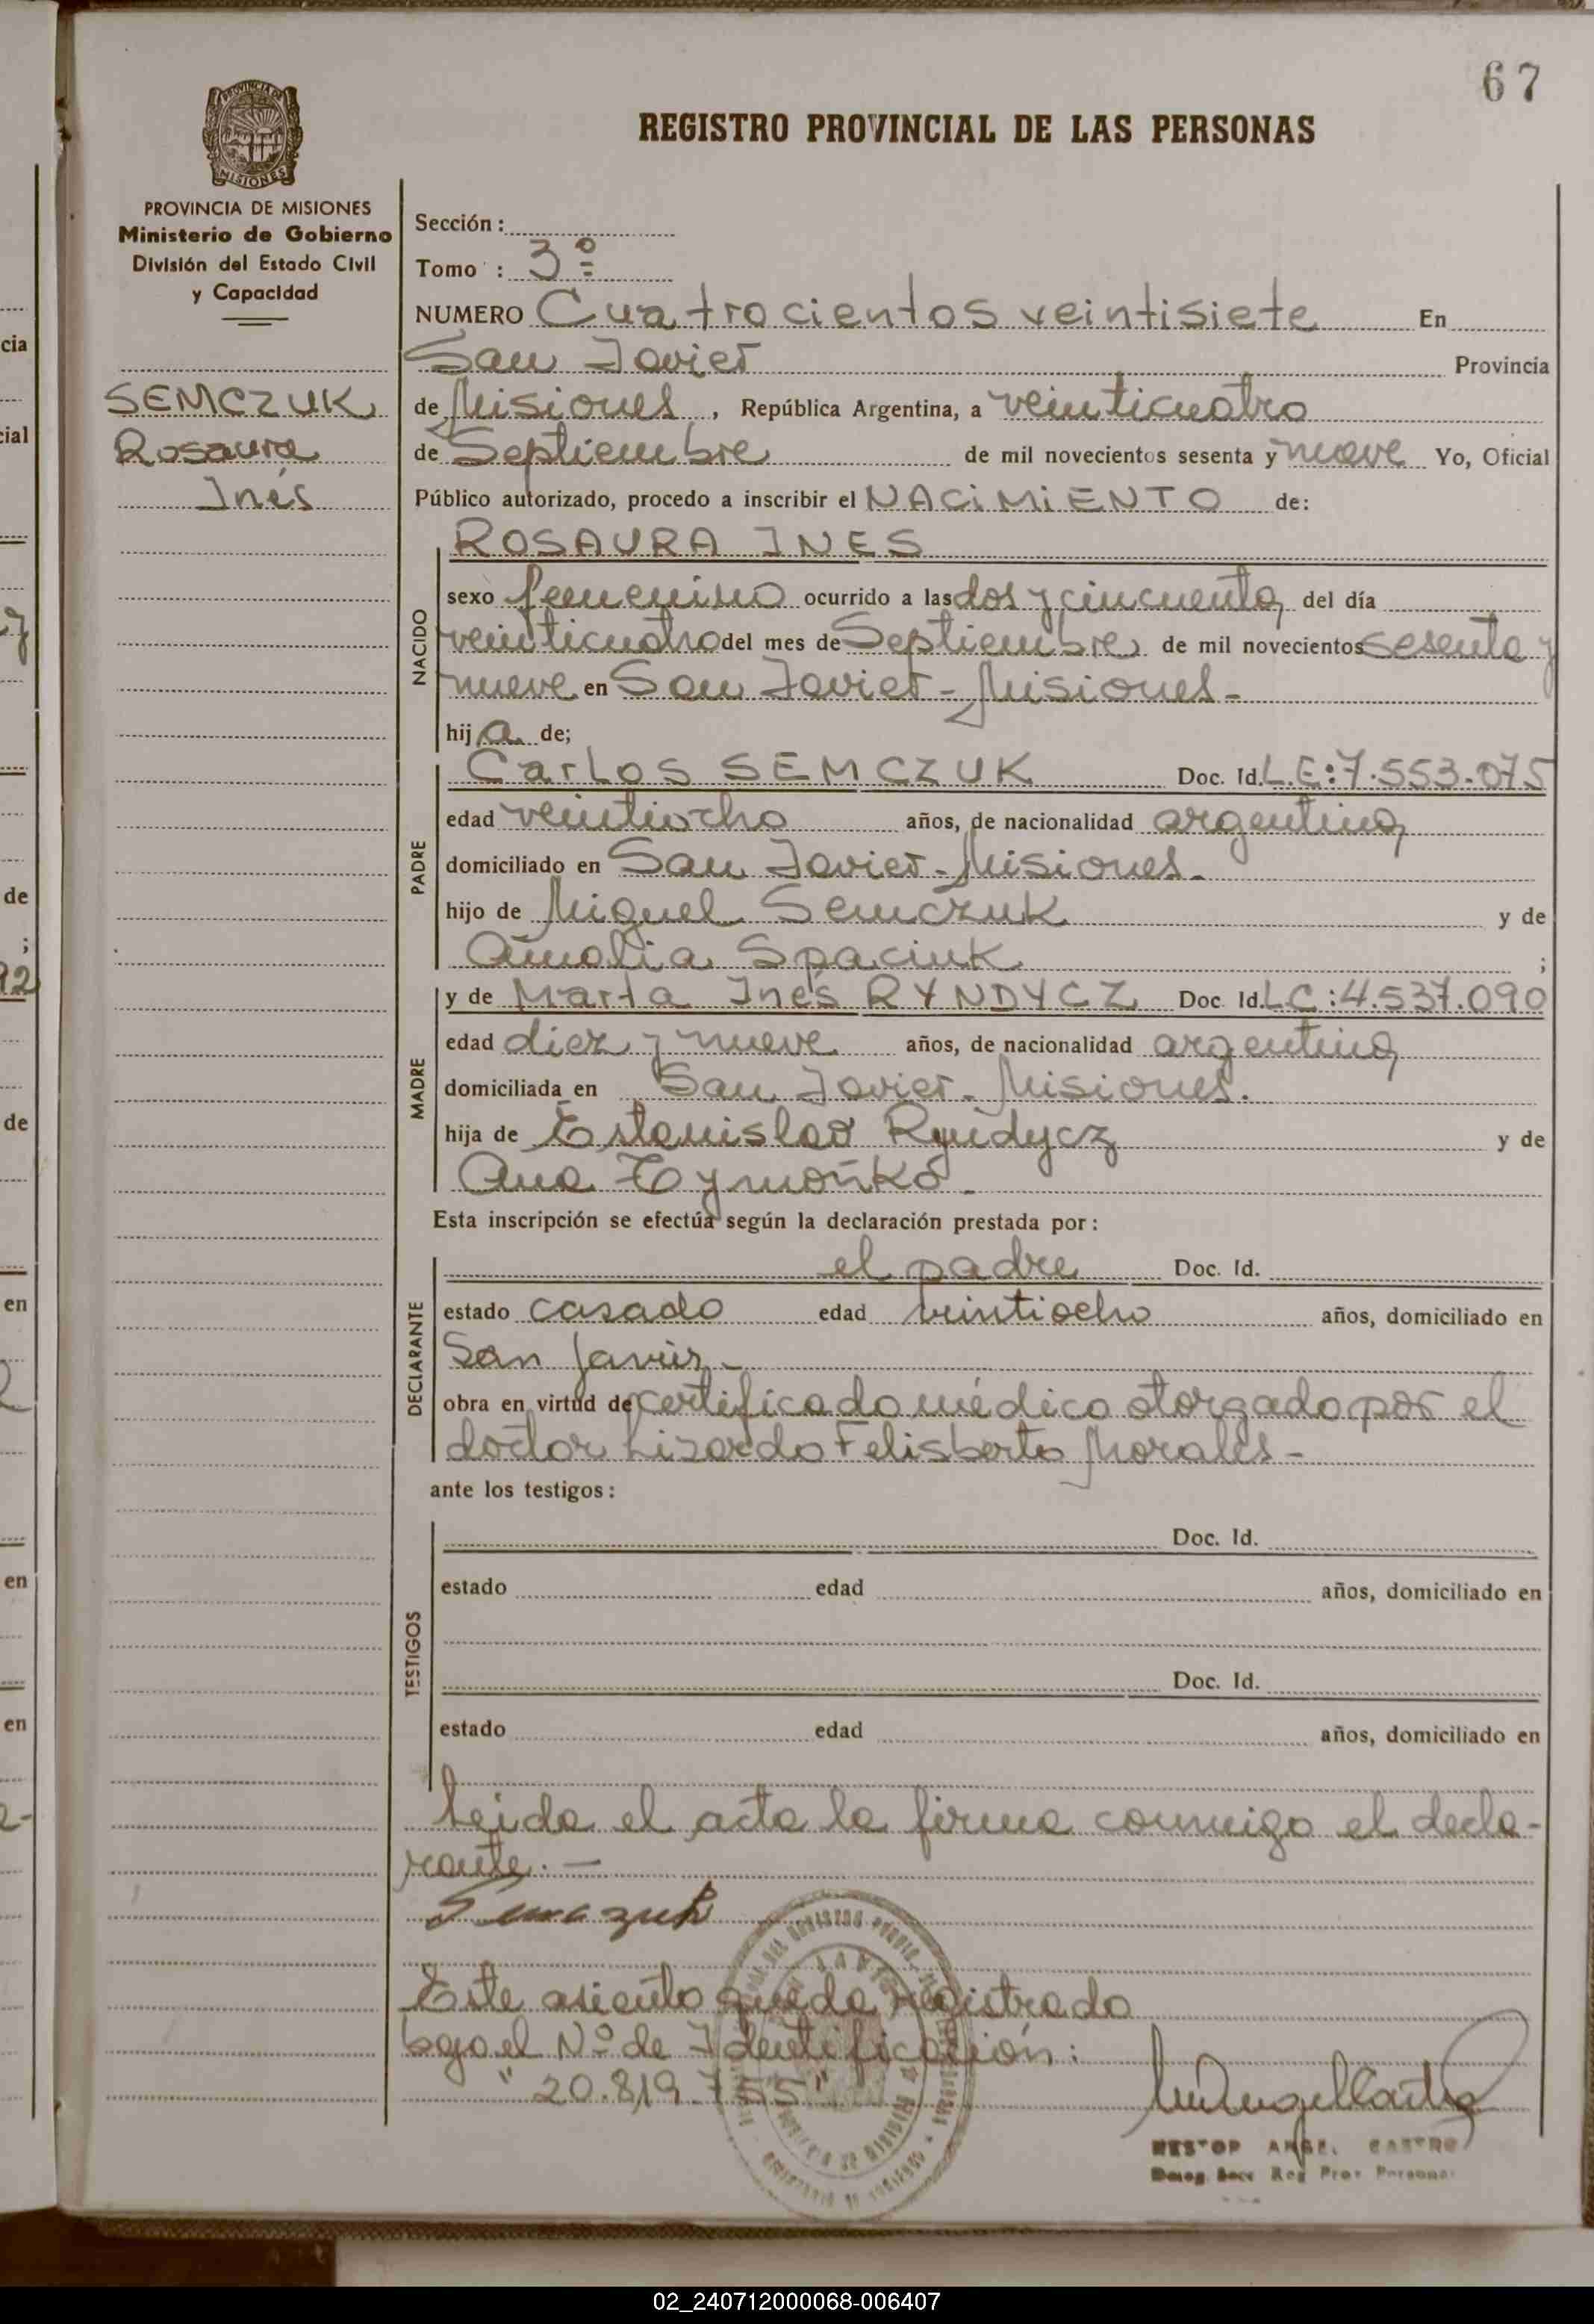 67
REGISTRO PROVINCIAL DE LAS PERSONAS
PROVINCIA DE
MISIONES
PROVINCIA DE MISIONES
Ministerio de Gobierno
División del Estado Civil
y Capacidad
SEMCZUK
Rosaura
Inés
Sección :
Tomo : 3º
NUMERO Cuatrocientos veintisiete En
San Javier Provincia
de Misiones, República Argentina, a veinticuatro
de Septiembre de mil novecientos sesenta y nueve Yo, Oficial
Público autorizado, procedo a inscribir el NACIMIENTO de:
NACIDO
ROSAURA INES
sexo femenino ocurrido a las dos y cincuenta, del día
veinticuatro del mes de Septiembre de mil novecientos sesenta y
nueve en San Javier - Misiones -
hija de;
PADRE
Carlos SEMCZUK Doc. Id. L.E: 7.553.075
edad veintiocho años, de nacionalidad argentina,
domiciliado en San Javier - Misiones -
hijo de Miguel Semczuk y de
Amalia Spaciuk ;
MADRE
y de Marta Inés RYNDYCZ Doc. Id. LC: 4.537.090
edad diez y nueve años, de nacionalidad argentina,
domiciliada en San Javier - Misiones.
hija de Estanislao Ryndycz y de
Ana Tymoñko -
Esta inscripción se efectúa según la declaración prestada por :
DECLARANTE
el padre Doc. Id.
estado casado edad veintiocho años, domiciliado en
San Javier -
obra en virtud de certificado médico otorgado por el
doctor Lizardo Felisberto Morales -
ante los testigos :
TESTIGOS
Doc. Id.
estado edad años, domiciliado en
Doc. Id.
estado edad años, domiciliado en
Leida el acta la firma conmigo el decla-
rante. -
Semczuk
Este asiento queda registrado
bajo el Nº de Identificación:
" 20.819.755 "
NESTOR ANGEL CASTRO
02_240712000068-006407